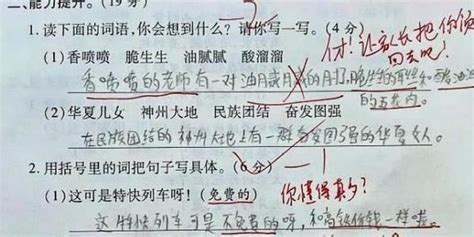 二、能力提升。(19分)
1.读下面的词语,你会想到什么? 请你写一写。(4分)
(1)香喷喷 脆生生 油腻腻 酸溜溜
才!让家长把你领回去吧!
香喷喷的老师有一对油腻腻的
脆生生的耳朵和酸溜溜的五花肉
(2)华夏儿女 神州大地 民族团结 奋发图强
在民族团结的神州大地上有一群奋发图强的华夏女人。
2.用括号里的词把句子写具体。(6分)
(1)这可是特快列车呀! (免费的)
你懂得真多?
这特快列车可是不免费的呀,和高铁价钱一样啦。